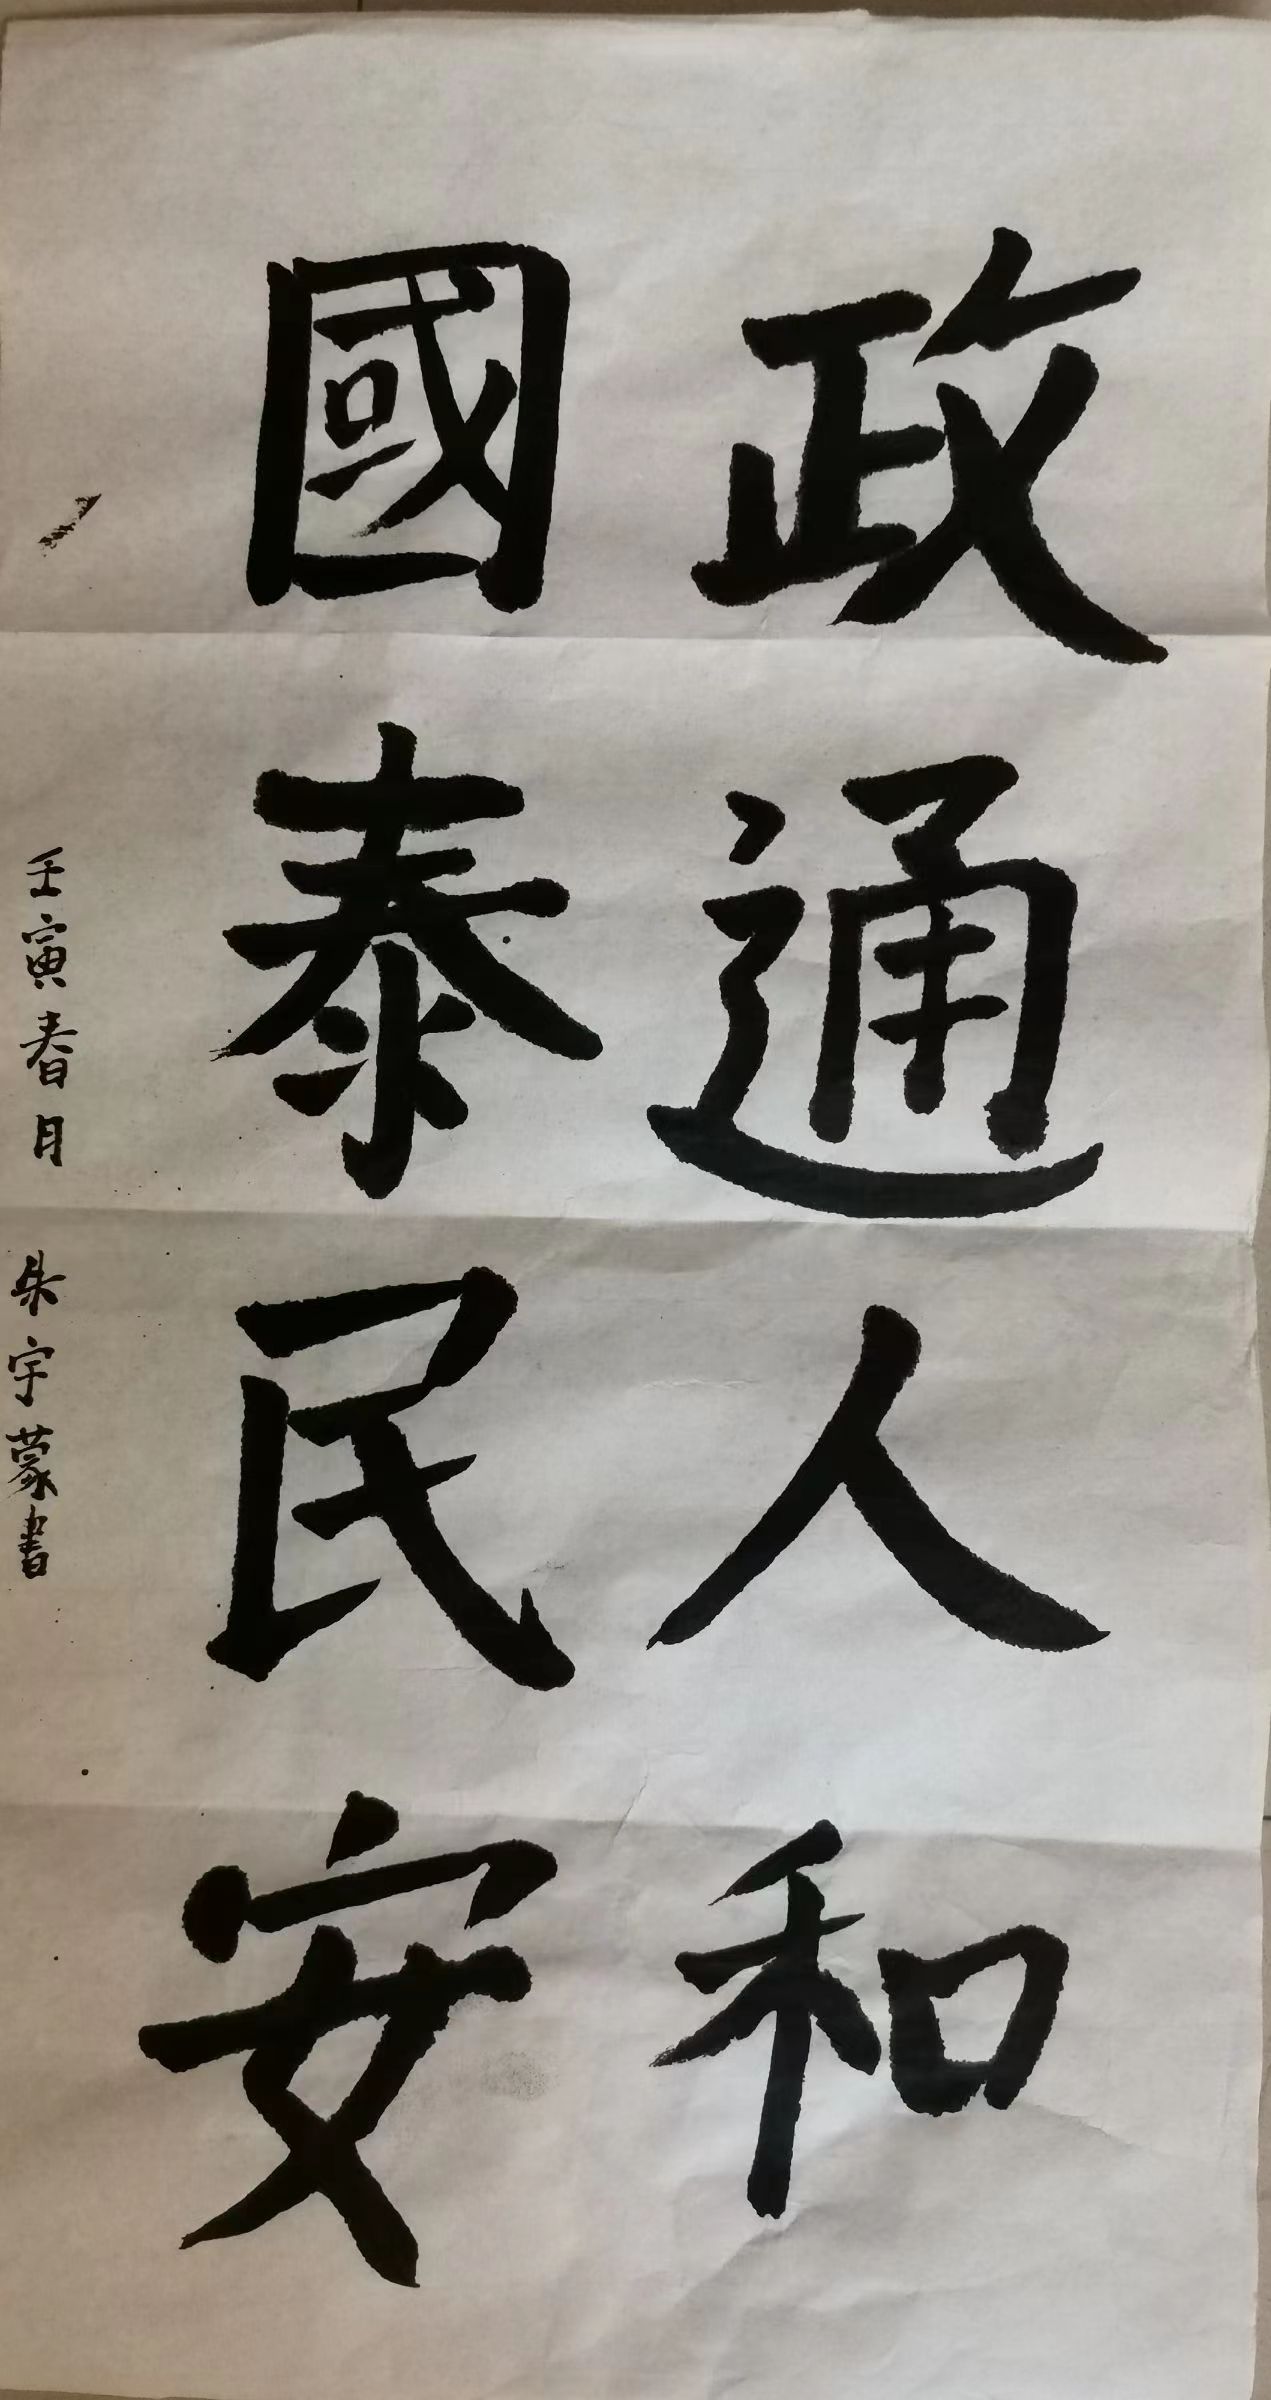 政通人和
國泰民安
壬寅春月 朱宇蒙書